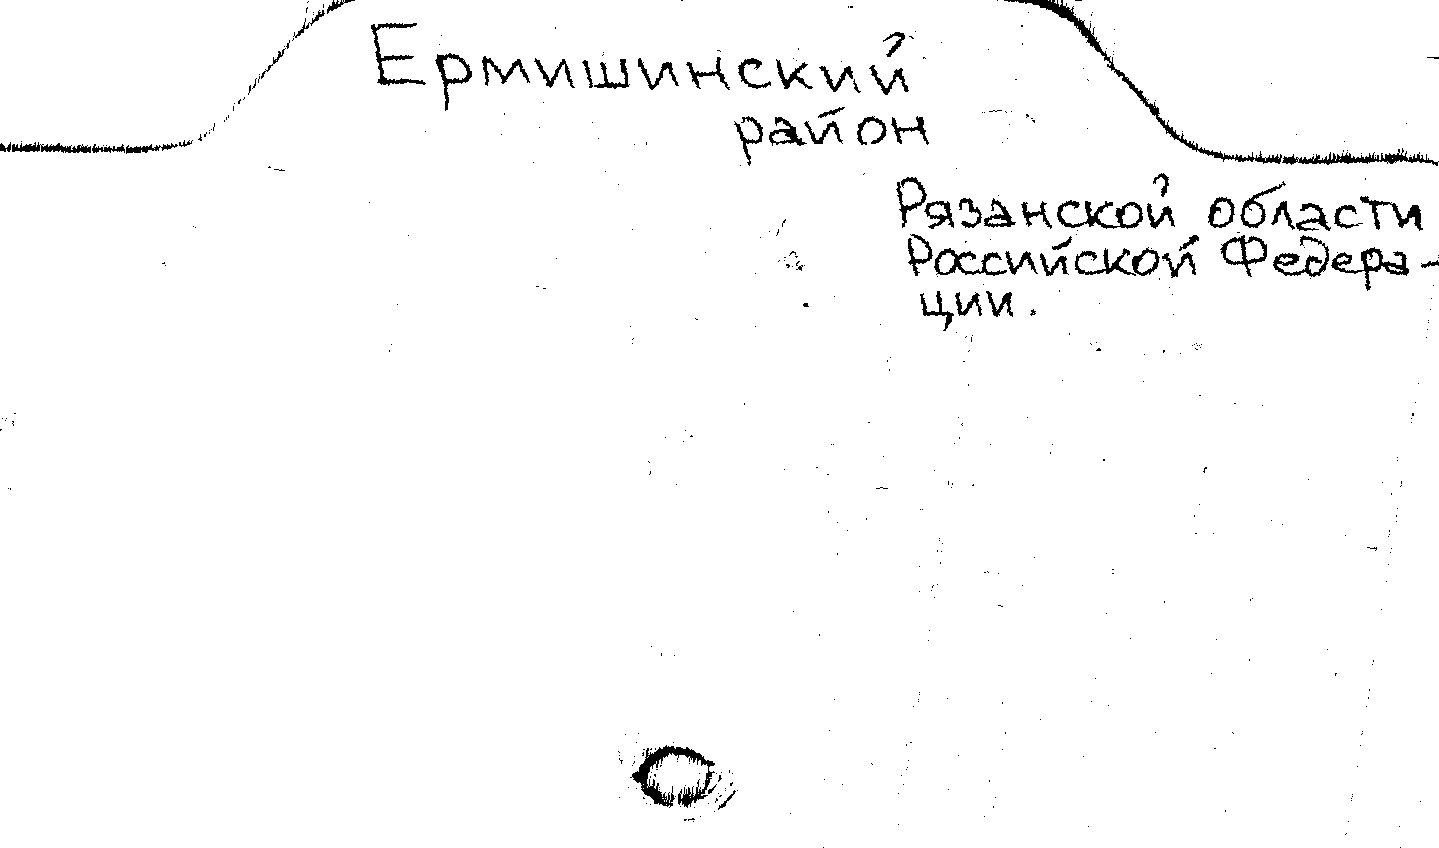 Ермишинский
район
Рязанской области
Российской Федера-
ции.